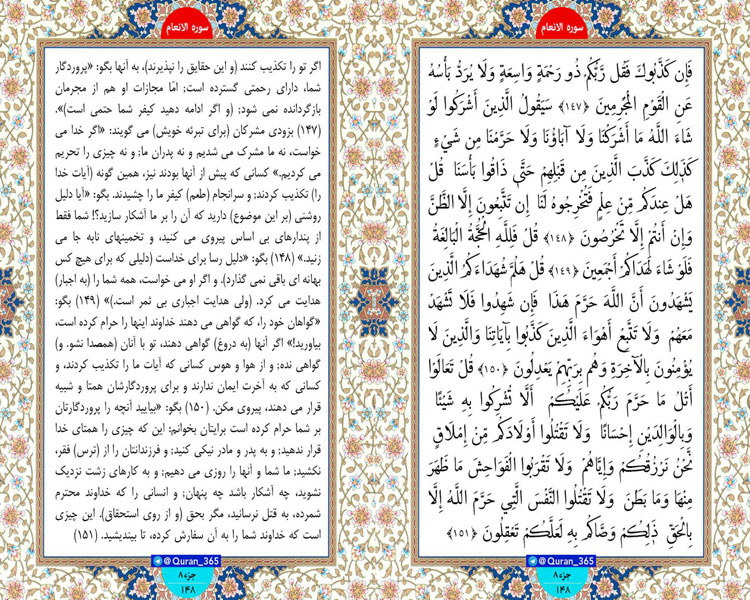 سوره الانعام
فَإِن كَذَّبُوكَ فَقُل رَّبُّكُمْ ذُو رَحْمَةٍ وَاسِعَةٍ وَلَا يُرَدُّ بَأْسُهُ
عَنِ الْقَوْمِ الْمُجْرِمِينَ ﴿١٤٧﴾ سَيَقُولُ الَّذِينَ أَشْرَكُوا لَوْ
شَاءَ اللَّهُ مَا أَشْرَكْنَا وَلَا آبَاؤُنَا وَلَا حَرَّمْنَا مِن شَيْءٍ
كَذَٰلِكَ كَذَّبَ الَّذِينَ مِن قَبْلِهِمْ حَتَّىٰ ذَاقُوا بَأْسَنَا قُلْ
هَلْ عِندَكُم مِّنْ عِلْمٍ فَتُخْرِجُوهُ لَنَا إِن تَتَّبِعُونَ إِلَّا الظَّنَّ
وَإِنْ أَنتُمْ إِلَّا تَخْرُصُونَ ﴿١٤٨﴾ قُلْ فَلِلَّهِ الْحُجَّةُ الْبَالِغَةُ
فَلَوْ شَاءَ لَهَدَاكُمْ أَجْمَعِينَ ﴿١٤٩﴾ قُلْ هَلُمَّ شُهَدَاءَكُمُ الَّذِينَ
يَشْهَدُونَ أَنَّ اللَّهَ حَرَّمَ هَٰذَا فَإِن شَهِدُوا فَلَا تَشْهَدْ
مَعَهُمْ وَلَا تَتَّبِعْ أَهْوَاءَ الَّذِينَ كَذَّبُوا بِآيَاتِنَا وَالَّذِينَ لَا
يُؤْمِنُونَ بِالْآخِرَةِ وَهُم بِرَبِّهِمْ يَعْدِلُونَ ﴿١٥٠﴾ قُلْ تَعَالَوْا
أَتْلُ مَا حَرَّمَ رَبُّكُمْ عَلَيْكُمْ أَلَّا تُشْرِكُوا بِهِ شَيْئًا
وَبِالْوَالِدَيْنِ إِحْسَانًا وَلَا تَقْتُلُوا أَوْلَادَكُم مِّنْ إِمْلَاقٍ
نَّحْنُ نَرْزُقُكُمْ وَإِيَّاهُمْ وَلَا تَقْرَبُوا الْفَوَاحِشَ مَا ظَهَرَ
مِنْهَا وَمَا بَطَنَ وَلَا تَقْتُلُوا النَّفْسَ الَّتِي حَرَّمَ اللَّهُ إِلَّا
بِالْحَقِّ ذَٰلِكُمْ وَصَّاكُم بِهِ لَعَلَّكُمْ تَعْقِلُونَ ﴿١٥١﴾
@Quran_365
جزء ۸
۱۴۸
سوره الانعام
اگر تو را تکذیب کنند (و این حقایق را نپذیرند)، به آنها بگو: «پروردگار
شما، دارای رحمتی گسترده است؛ امّا مجازات او هم از مجرمان
بازگردانده نمی شود؛ (و اگر ادامه دهید کیفر شما حتمی است)».
(۱۴۷) بزودی مشرکان (برای تبرئه خویش) می گویند: «اگر خدا می
خواست، نه ما مشرک می شدیم و نه پدران ما؛ و نه چیزی را تحریم
می کردیم.» کسانی که پیش از آنها بودند نیز، همین گونه (آیات خدا
را) تکذیب کردند؛ و سرانجام (طعم) کیفر ما را چشیدند. بگو: «آیا دلیل
روشنی (بر این موضوع) دارید که آن را بر ما آشکار سازید؟! شما فقط
از پندارهای بی اساس پیروی می کنید، و تخمینهای نابه جا می
زنید.» (۱۴۸) بگو: «دلیل رسا برای خداست (دلیلی که برای هیچ کس
بهانه ای باقی نمی گذارد). و اگر او می خواست، همه شما را (به اجبار)
هدایت می کرد. (ولی هدایت اجباری بی ثمر است.)» (۱۴۹) بگو:
«گواهان خود را، که گواهی می دهند خداوند اینها را حرام کرده است،
بیاورید!» اگر آنها (به دروغ) گواهی دهند، تو با آنان (همصدا نشو. و)
گواهی نده؛ و از هوا و هوس کسانی که آیات ما را تکذیب کردند، و
کسانی که به آخرت ایمان ندارند و برای پروردگارشان همتا و شبیه
قرار می دهند، پیروی مکن. (۱۵۰) بگو: «بیایید آنچه را پروردگارتان
بر شما حرام کرده است برایتان بخوانم؛ این که چیزی را همتای خدا
قرار ندهید؛ و به پدر و مادر نیکی کنید؛ و فرزندانتان را از (ترس) فقر،
نکشید؛ ما شما و آنها را روزی می دهیم؛ و به کارهای زشت نزدیک
نشوید، چه آشکار باشد چه پنهان؛ و انسانی را که خداوند محترم
شمرده، به قتل نرسانید، مگر بحق (و از روی استحقاق). این چیزی
است که خداوند شما را به آن سفارش کرده، تا بیندیشید. (۱۵۱)
@Quran_365
جزء ۸
۱۴۸